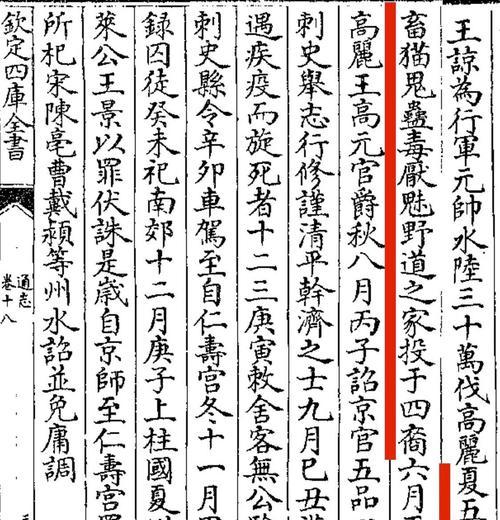 王諒為行軍元帥水陸三十萬伐高麗夏五
畜猫鬼蠱毒厭魅野道之家投于四裔六月
高麗王高元官爵秋八月丙子詔京官五品
刺史舉志行修謹清平幹濟之士九月己丑
遇疾疫而旋死者十二三庚寅敕舍客無公
刺史縣令辛卯車駕至自仁壽宮冬十一月
録囚徒癸未祀南郊十二月庚子上柱國夏
萊公王景以罪伏誅是歲自京師至仁壽宮
所杞宋陳亳曹戴頴等州水詔並免庸調
欽定四庫全書
通志
卷十八